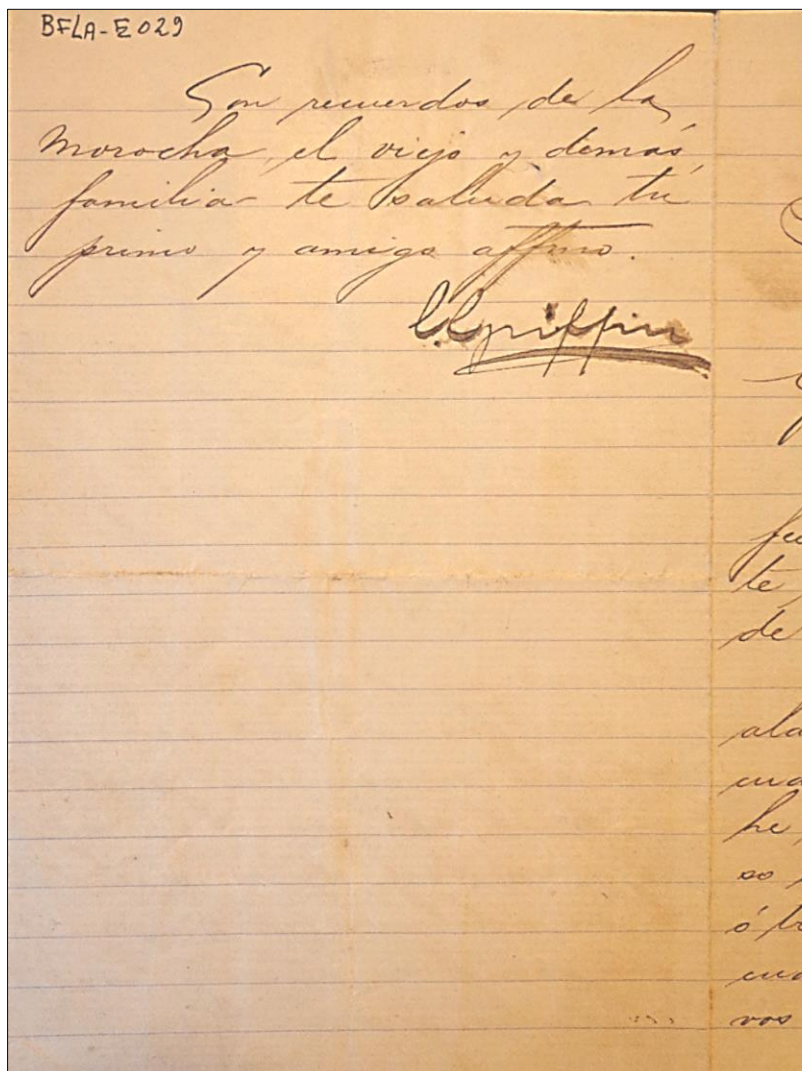 BFLA-E029
Son recuerdos de la
Morocha, el viejo y demás
familia te saluda tu
primo y amigo affmo.
C Griffin
te
de
he
ó
vos